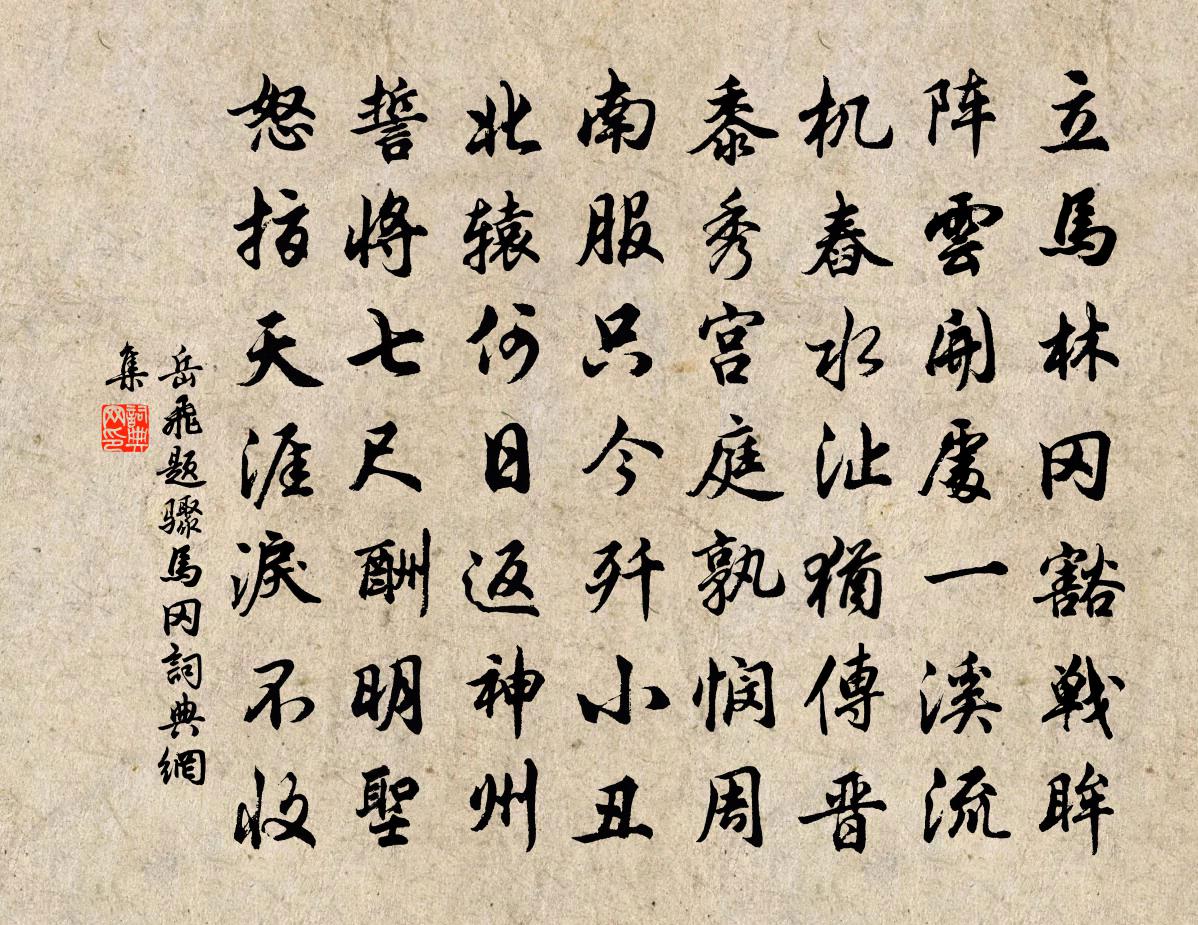 立馬林冈豁戦眸
阵雲開處一溪流
机舂水沚猶傳晋
黍秀宫庭孰悯周
南服只今歼小丑
北辕何日返神州
誓将七尺酬明聖
怒指天涯淚不收
岳飛题骤馬冈詞典網
集
詞典
网印